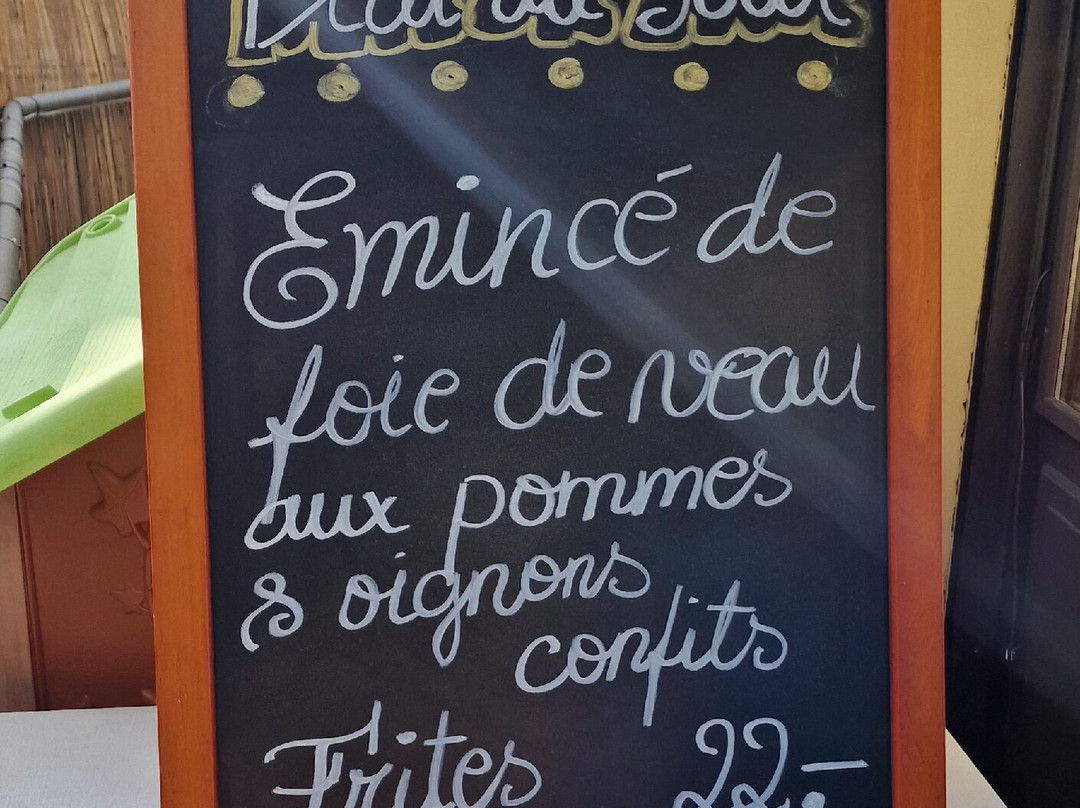 Plat du Jour
Emincé de
foie de veau
aux pommes
& oignons
confits
Frites 22.-